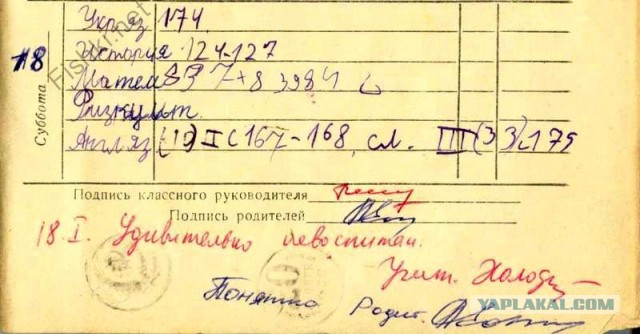 Укр яз 174
История 124-127
18 Матем 837+8 3984
Суббота
Физкульт.
Англ яз (10) II с 167-168, сл. III (33) с 175
Подпись классного руководителя
Подпись родителей
18 I. Удивительно невоспитан.
Учит.
Понятно Родит.
Fishki.net
YAPLAKAL.COM